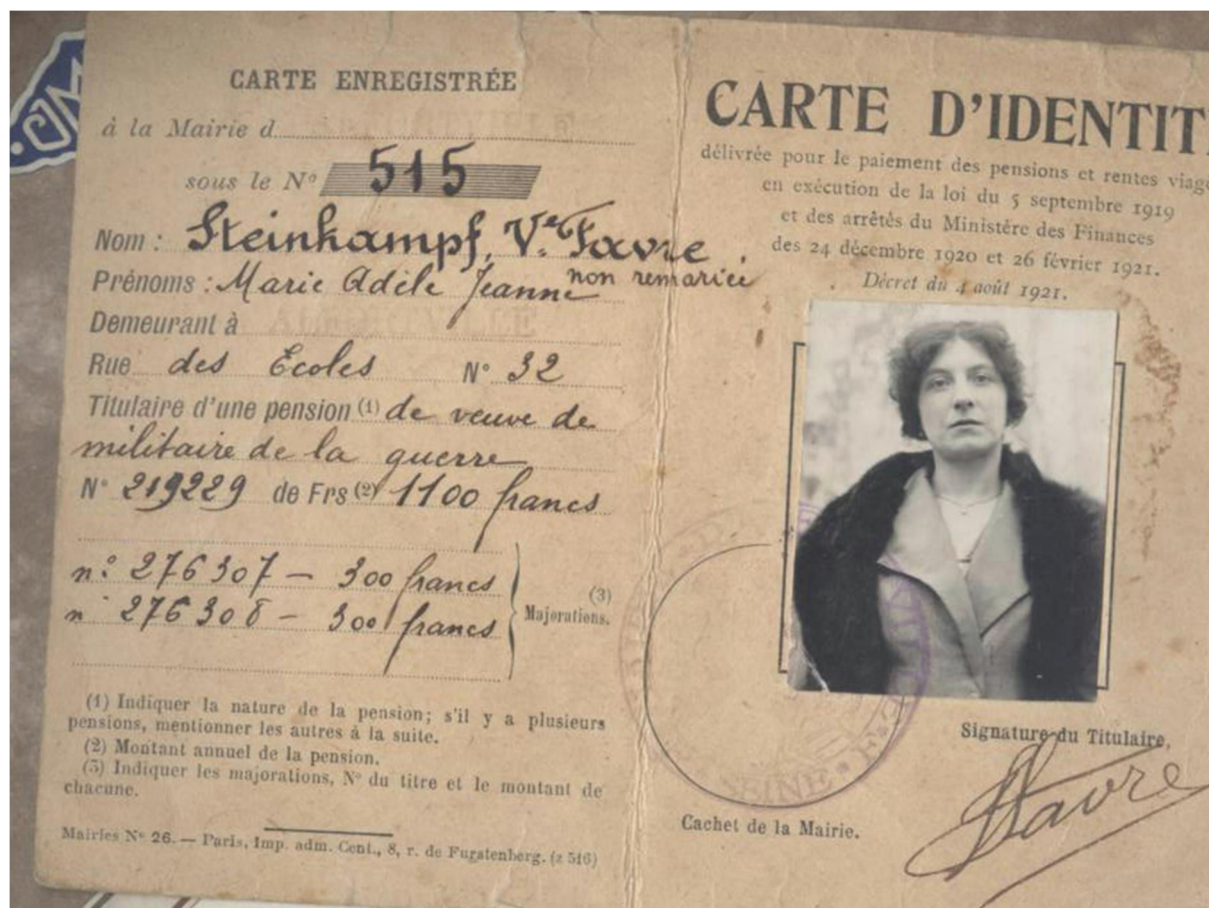 CARTE ENREGISTRÉE
à la Mairie d
sous le N° 515
Nom : Steinkampf, Vve Favre
non remariée
Prénoms : Marie Adèle Jeanne
Demeurant à ALBERTVILLE
Rue des Ecoles N° 32
Titulaire d'une pension (1) de veuve de
militaire de la guerre
N° 219229 de Frs (2) 1100 francs
n° 276307 — 300 francs
n° 276308 — 300 francs
(3)
Majorations.
(1) Indiquer la nature de la pension; s'il y a plusieurs
pensions, mentionner les autres à la suite.
(2) Montant annuel de la pension.
(3) Indiquer les majorations, N° du titre et le montant de
chacune.
Mairies N° 26. — Paris, Imp. adm. Cent., 8, r. de Furstenberg. (z 516)
CARTE D'IDENTIT
délivrée pour le paiement des pensions et rentes viag
en exécution de la loi du 5 septembre 1919
et des arrêtés du Ministère des Finances
des 24 décembre 1920 et 26 février 1921.
Décret du 4 août 1921.
SEINE
Signature du Titulaire,
Favre
Cachet de la Mairie.